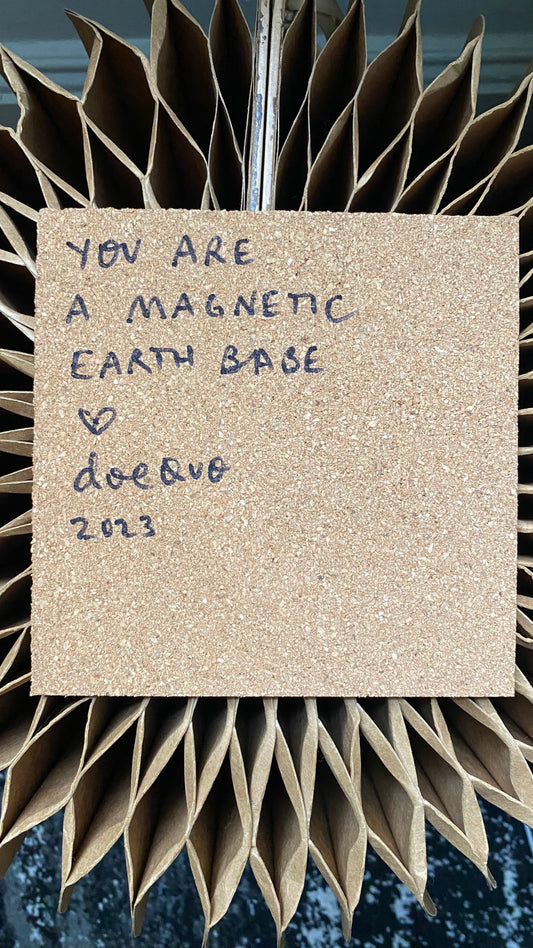 YOU ARE
A MAGNETIC
EARTH BABE
♡
doeQuo
2023